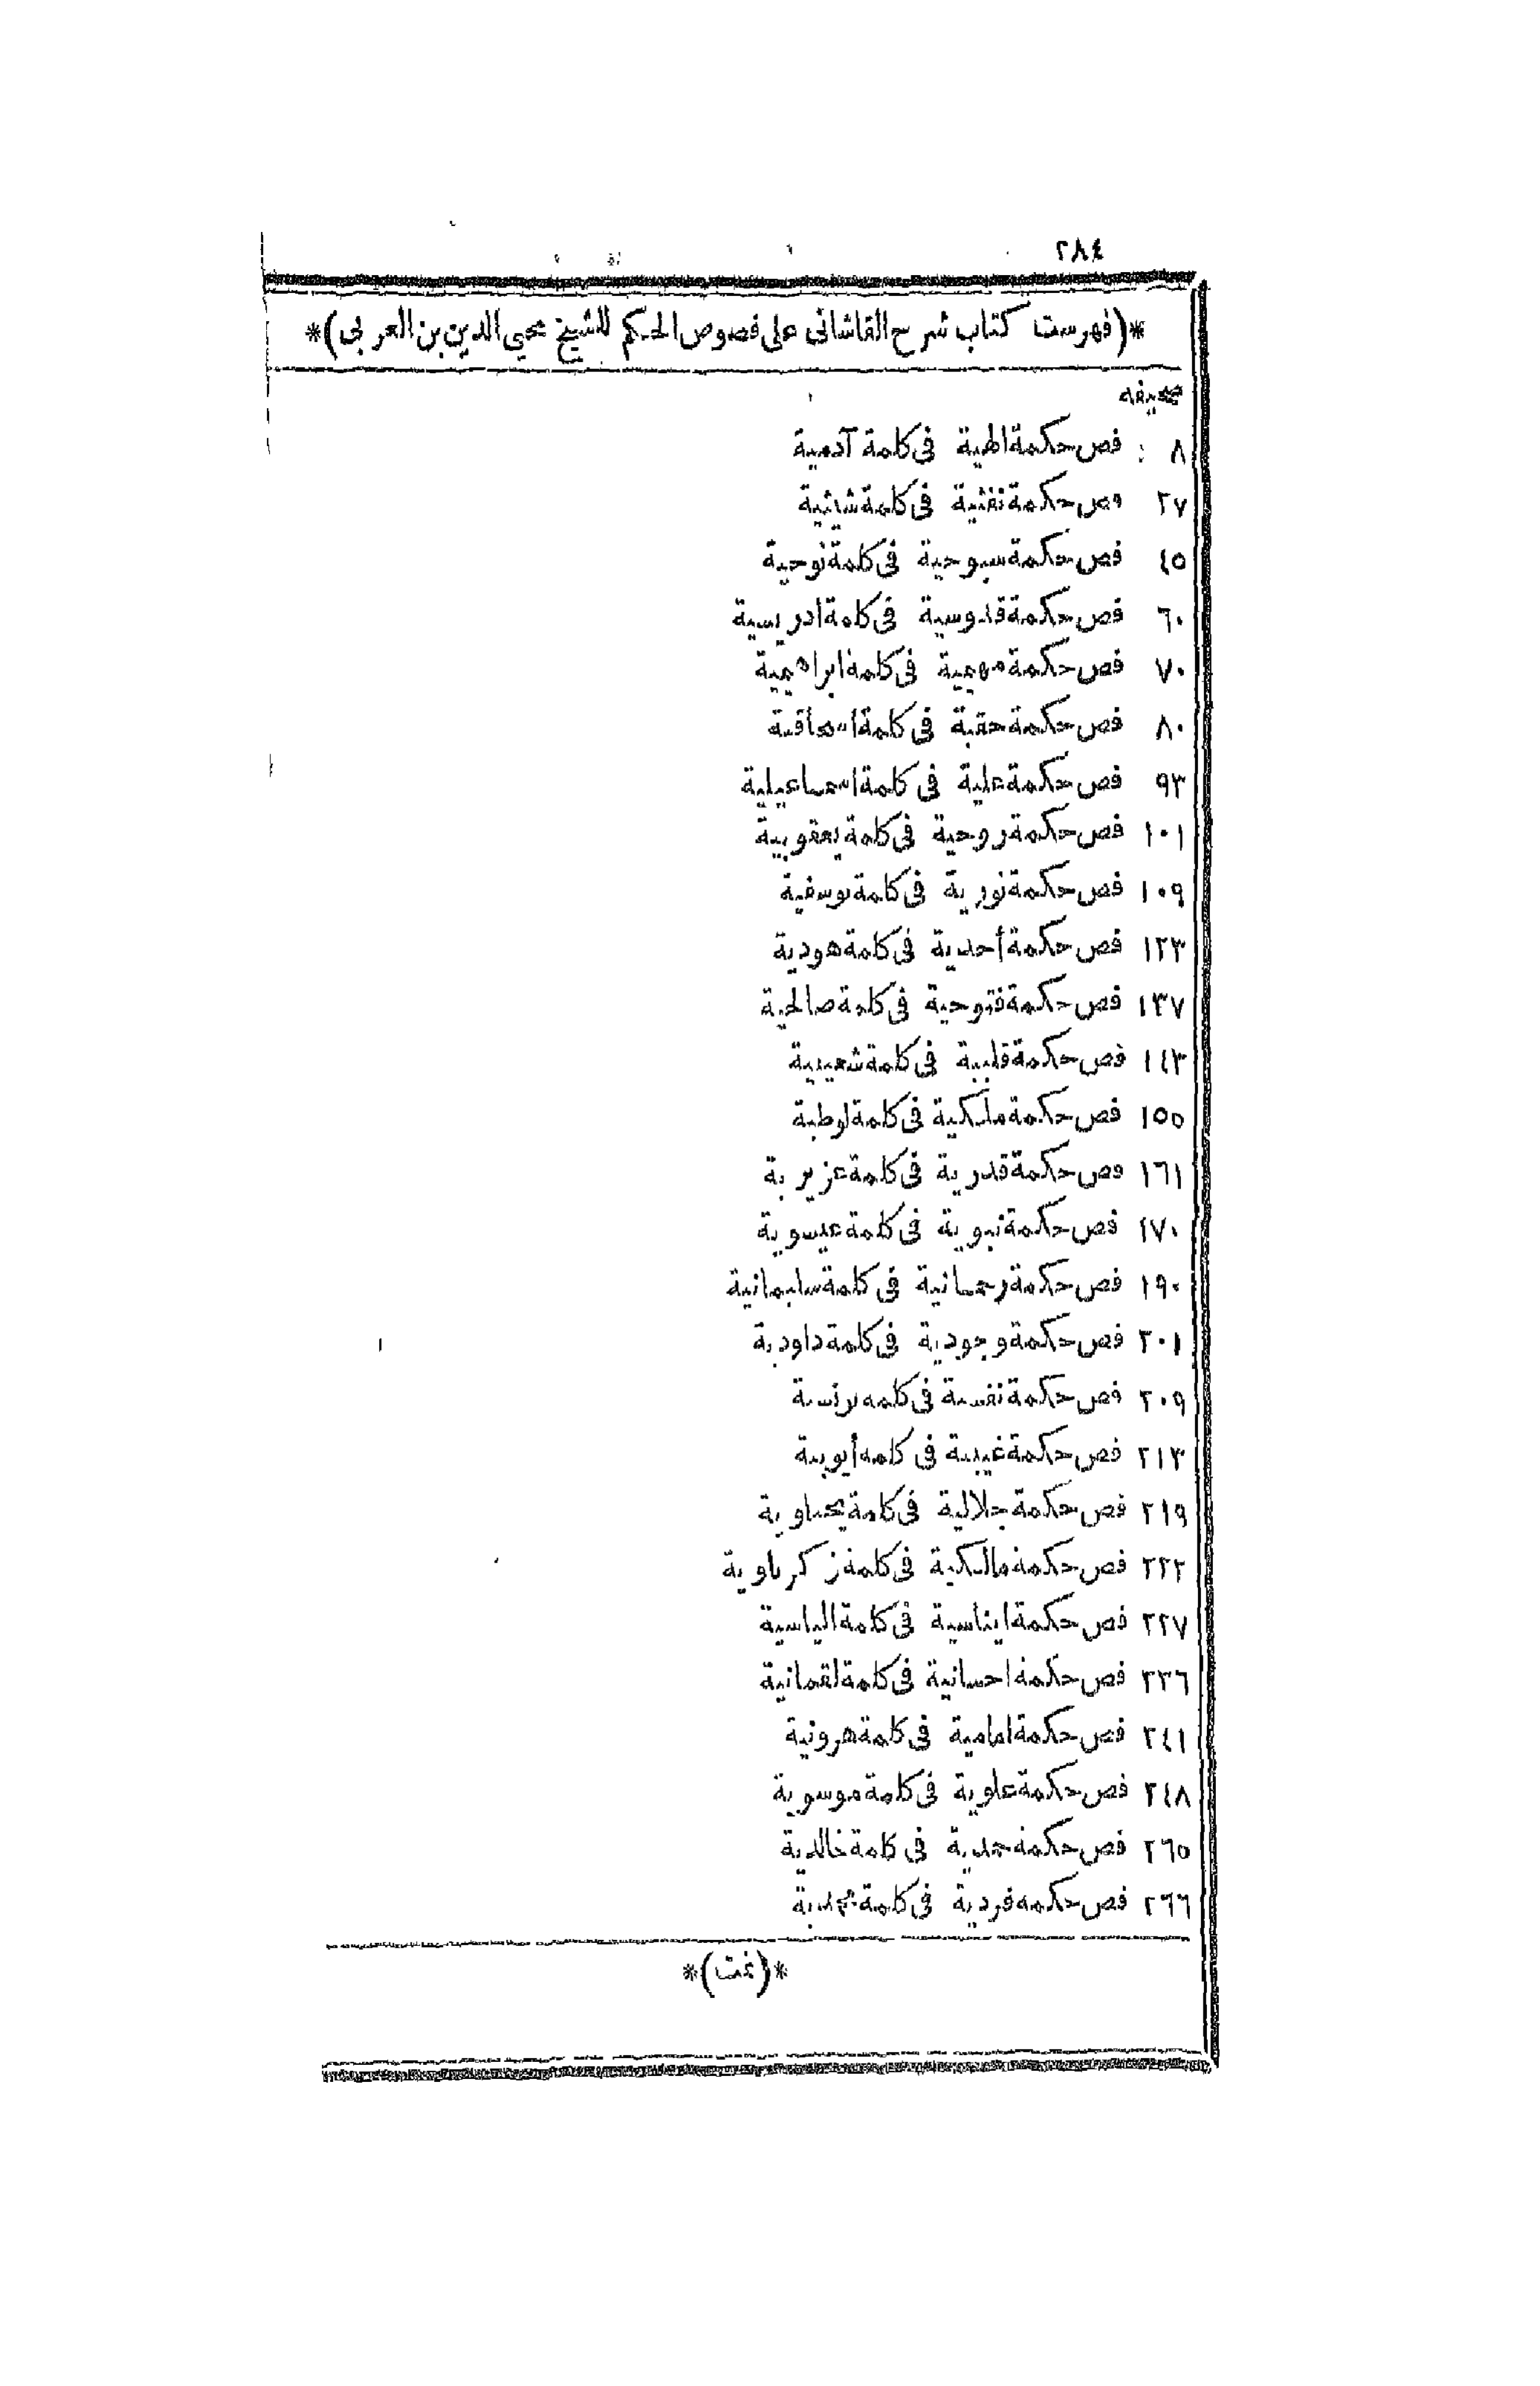 ٢٨٤
*(فهرست كتاب شرح القاشانى على فصوص الحكم للشيخ محيى الدين بن العربى)*
صحيفه
٨ فص حكمة الهية فى كلمة آدمية
٢٧ فص حكمة نفثية فى كلمة شيثية
٤٥ فص حكمة سبوحية فى كلمة نوحية
٦٠ فص حكمة قدوسية فى كلمة ادريسية
٧٠ فص حكمة مهيمية فى كلمة ابراهيمية
٨٠ فص حكمة حقية فى كلمة اسحاقية
٩٣ فص حكمة علية فى كلمة اسماعيلية
١٠١ فص حكمة روحية فى كلمة يعقوبية
١٠٩ فص حكمة نورية فى كلمة يوسفية
١٢٣ فص حكمة أحدية فى كلمة هودية
١٣٧ فص حكمة فتوحية فى كلمة صالحية
١٤٣ فص حكمة قلبية فى كلمة شعيبية
١٥٥ فص حكمة ملكية فى كلمة لوطية
١٦١ فص حكمة قدرية فى كلمة عزيرية
١٧٠ فص حكمة نبوية فى كلمة عيسوية
١٩٠ فص حكمة رحمانية فى كلمة سليمانية
٢٠١ فص حكمة وجودية فى كلمة داودية
٢٠٩ فص حكمة نفسية فى كلمه يونسية
٢١٣ فص حكمة غيبية فى كلمه أيوبية
٢١٩ فص حكمة جلالية فى كلمة يحياوية
٢٢٢ فص حكمة مالكية فى كلمة زكرياوية
٢٢٧ فص حكمة ايناسية فى كلمة الياسية
٢٣٦ فص حكمة احسانية فى كلمة لقمانية
٢٤١ فص حكمة امامية فى كلمة هرونية
٢٤٨ فص حكمة علوية فى كلمة موسوية
٢٦٥ فص حكمة صمدية فى كلمة خالدية
٢٦٦ فص حكمه فردية فى كلمة محمدية
*(تمت)*